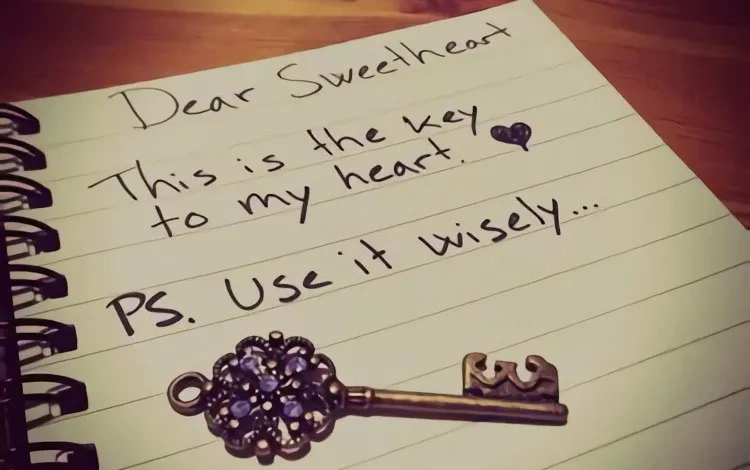 Dear Sweetheart
This is the key
to my heart. ♥
PS. Use it wisely...